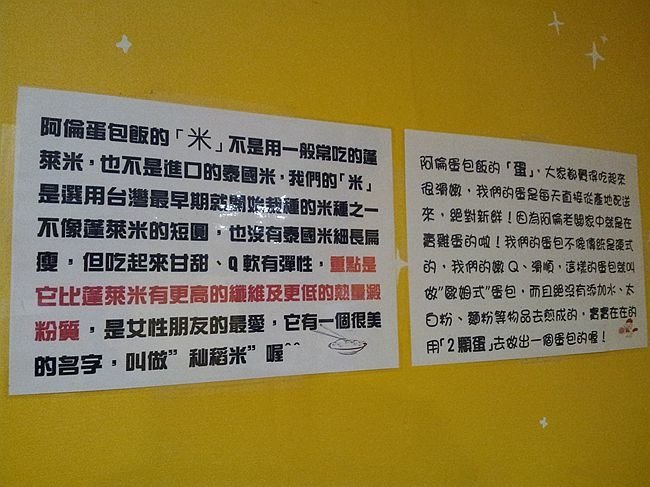 阿倫蛋包飯的「米」不是用一般常吃的蓬
萊米，也不是進口的泰國米，我們的「米」
是選用台灣最早期就開始栽種的米種之一
不像蓬萊米的短圓，也沒有泰國米細長扁
瘦，但吃起來甘甜、Q軟有彈性，重點是
它比蓬萊米有更高的纖維及更低的熱量澱
粉質，是女性朋友的最愛，它有一個很美
的名字，叫做”秈稻米”喔^^
阿倫蛋包飯的「蛋」，大家都覺得吃起來
很滑嫩，我們的蛋是每天直接從產地配送
來，絕對新鮮！因為阿倫老闆家中就是在
賣雞蛋的啦！我們的蛋包不像傳統是硬式
的，我們的嫩Q、滑順，這樣的蛋包就叫
做”歐姆式”蛋包，而且絕沒有添加水、太
白粉、麵粉等物品去煎成的，實實在在的
用「2顆蛋」去做出一個蛋包的喔！